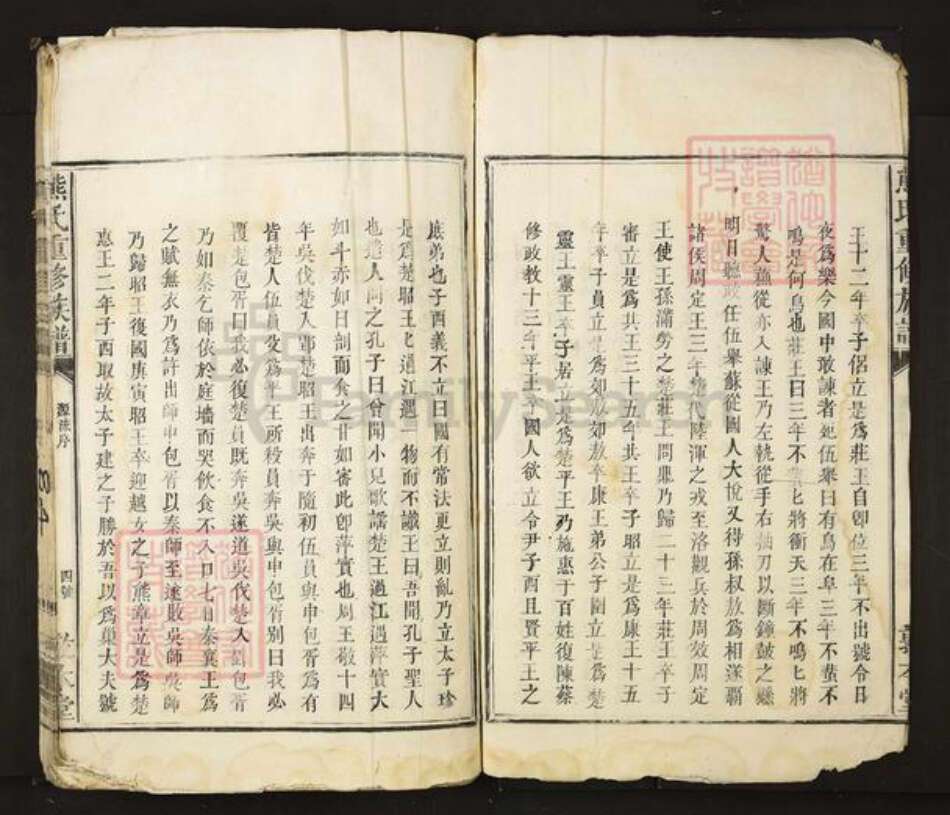 熊氏重修族譜
王十二年卒子侶立是為莊王自卽位三年不出號令日
夜爲樂令國中敢諫者死伍舉曰有鳥在阜三年不蜚不
鳴是何鳥也莊王曰三年不蜚匕將衝天三年不鳴匕將
驚人蘓從亦入諫王乃左執從手右抽刀以斷鐘鼓之懸
明日聽政任伍舉蘇從國人大悅又得孫叔敖爲相遂覇
諸侯周定王三年楚伐陸渾之戎至洛觀兵於周效周定
王使王孫滿勞之楚莊王問鼎乃歸二十三年莊王卒于
審立是爲共王三十五年共王卒子昭立是爲康王十五
年卒子員立是爲郟敖郊敖卒康王弟公子圍立是爲楚
靈王靈王卒子居立是爲楚平王乃施惠于百姓復陳蔡
修政教十三年平王卒國人欲立令尹子酉且賢平王之
庶弟也子酉義不立曰國有常法更立則亂乃立太子珍
是爲楚昭王匕過江遇一物而不識王曰吾聞孔子聖人
也遣人問之孔子曰曾聞小兒歌謠楚王過江遇萍實大
如斗赤如日剖而食之甘如審此卽萍實也周王敬十四
年吳伐楚入郢楚昭王出奔于隨初伍員與申包胥爲有
皆楚人伍員父爲平王所殺員奔吳與申包胥別曰我必
覆楚包胥曰我必復楚員既奔吳遂道吳伐楚入郢包胥
乃如秦乞師依於庭墻而哭飲食不入口七日秦襄王爲
之賦無衣乃爲許出師申包胥以秦師至遂敗吳師吳師
乃歸昭王復國庚寅昭王卒迎越女之子熊章立是爲楚
惠王二年子酉取故太子建之子勝於吾以爲巢大夫號
熊氏重修族譜
源流序
四號